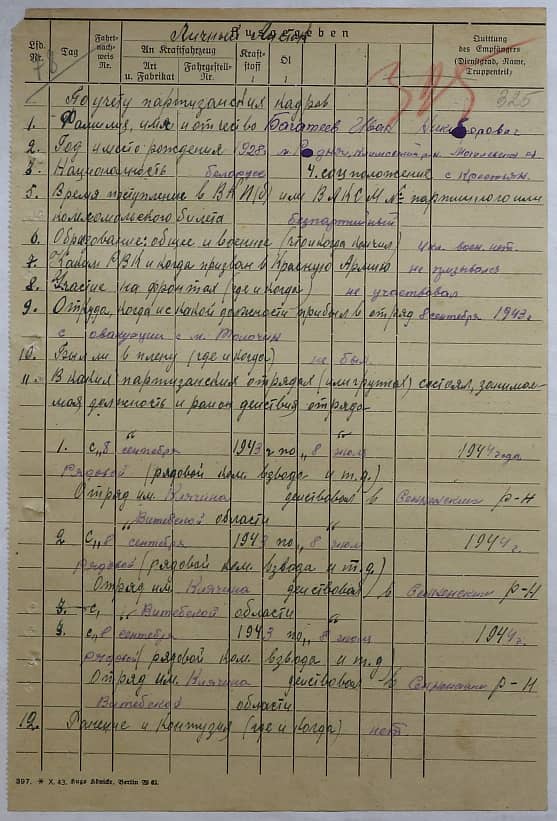 Личный листок
Ausgegeben
Lfd. Nr.
Tag
Fahrt-
nach-
weis
Nr.
An Kraftfahrzeug
Art
u. Fabrikat
Fahrgestell-
Nr.
Kraft-
stoff
l
Öl
l
Quittung
des Empfängers
(Dienstgrad, Name,
Truppenteil)
78
325
325
По учету партизанских кадров
1. Фамилия, имя и отчество Багатеев Иван
2. Год и место рождения 1928
3. Национальность белорусс 4. соц положение с крестьян.
5. Время вступление в ВКП(б) или ВЛКСМ № партийного или
комсомольского билета безпартийный
6. Образование: общее и военное (что и когда кончил) 4 кл. воен. нет.
7. Каким РВК и когда призван в Красную Армию не призывался
8. Участие на фронтах (где и когда) не участвовал
9. Откуда, когда и с какой должности прибыл в отряд 8 сентября 1943 г
с эвакуации с м. Толочин
10. Был ли в плену (где и когда) не был.
11. В каких партизанских отрядах (или группах) состоял, занимае-
мая должность и район действия отряда
1. с „8" сентября 1943 г по „8" июля 1944 года
рядовой (рядовой ком. взвода и т.д.)
Отряд им. Клячина действовал в Сенненским р-н
Витебской области
2 с „8 сентября 1943 по „8" июля 1944 г.
рядовой (рядовой ком. взвода и т.д.)
Отряд им Клячина действовал в Сенненским р-н
3. с „ Витебской области
3. с „8 сентября 1943 по „8" июля 1944 г.
рядовой (рядовой ком. взвода и т.д)
Отряд им Клячина действовал в Сенненским р-н
Витебской области
12. Ранение и контузия (где и когда) нет.
397. * X. 43. Hugo Könicke, Berlin W 61.